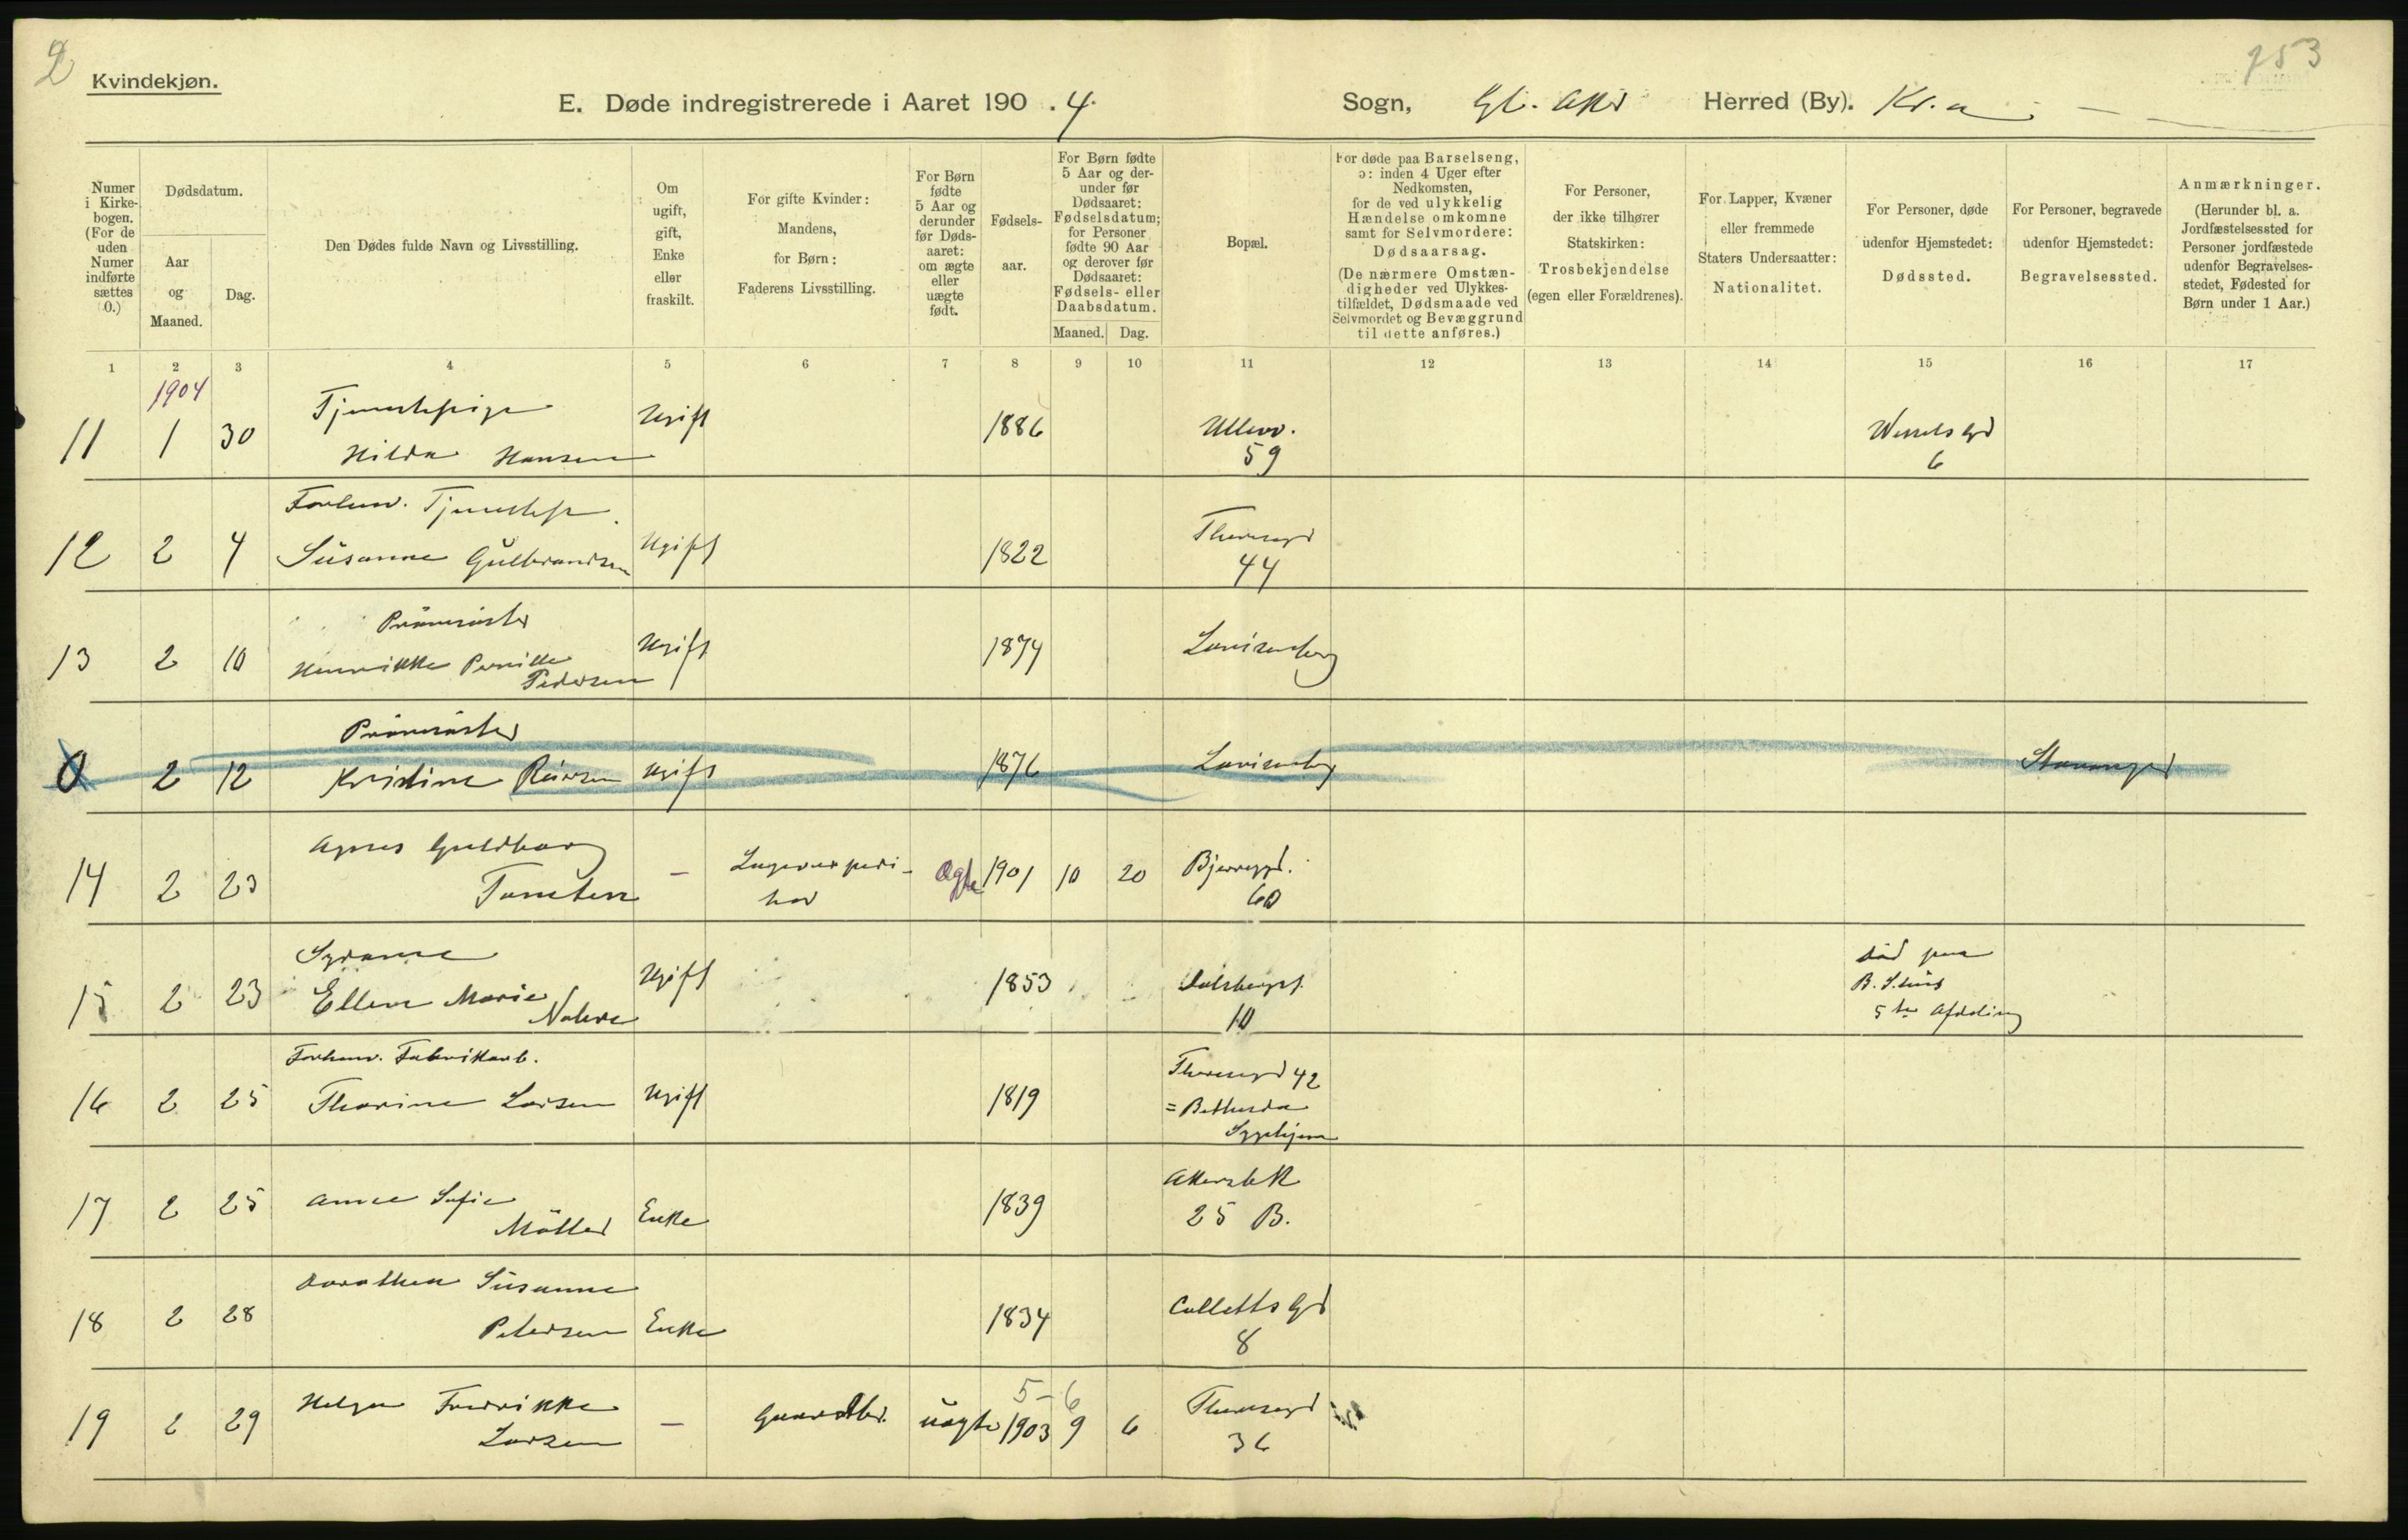 2
Kvindekjøn.
253
E. Døde indregistrerede i Aaret 190 . 4.
Sogn, Gl. Aker Herred (By). Kr.a
Numer i Kirkebogen. (For de uden Numer indførte sættes 0.)
Dødsdatum.
Aar og Maaned.
Dag.
Den Dødes fulde Navn og Livsstilling.
Om ugift, gift, Enke eller fraskilt.
For gifte Kvinder: Mandens, for Børn: Faderens Livsstilling.
For Børn fødte 5 Aar og derunder før Dødsaaret: om ægte eller uægte født.
Fødselsaar.
For Børn fødte 5 Aar og derunder før Dødsaaret: Fødselsdatum; for Personer fødte 90 Aar og derover før Dødsaaret: Fødsels- eller Daabsdatum.
Maaned. Dag.
Bopæl.
For døde paa Barselseng, ɔ: inden 4 Uger efter Nedkomsten, for de ved ulykkelig Hændelse omkomne samt for Selvmordere: Dødsaarsag. (De nærmere Omstændigheder ved Ulykkestilfældet, Dødsmaade ved Selvmordet og Bevæggrund til dette anføres.)
For Personer, der ikke tilhører Statskirken: Trosbekjendelse (egen eller Forældrenes).
For Lapper, Kvæner eller fremmede Staters Undersaatter: Nationalitet.
For Personer, døde udenfor Hjemstedet: Dødssted.
For Personer, begravede udenfor Hjemstedet: Begravelsessted.
Anmærkninger. (Herunder bl. a. Jordfæstelsessted for Personer jordfæstede udenfor Begravelsesstedet, Fødested for Børn under 1 Aar.)
1 2 3 4 5 6 7 8 9 10 11 12 13 14 15 16 17
1904
Tjenestepige
11 1 30 Hilda Hansen Ugift 1886 Ullev. 59 Wessels Gd 6
Forhenv. Tjenestep.
12 2 4 Susanne Gulbrandsen Ugift 1822 Theresegd 44
Prøvesøster
13 2 10 Henrikke Pernille Pedersen Ugift 1874 Lovisenberg
Prøvesøster
0 2 12 Kristine Reiersen Ugift 1876 Lovisenberg Stavanger
Agnes Guldborg
14 2 23 – Lagerexpeditør Ægte 1901 10 20 Bjerregd. 60
Sydame
15 2 23 Ellen Marie Ugift 1853 10 død paa B. Shus 5te Afdeling
Forhenv. Fabrikarb.
16 2 25 Thorine Larsen Ugift 1819 Theresegd 42
= Bethesda
Sygehjem
17 2 25 Anne Sofie Møller Enke 1839 Akersbk 25 B.
Dorothea Susanne
18 2 28 Petersen Enke 1834 Colletts Gd 8
5 – 6
19 2 29 Helga Fredrikke Larsen – Gaardbr. uægte 1903 9 6 Theresegd 36